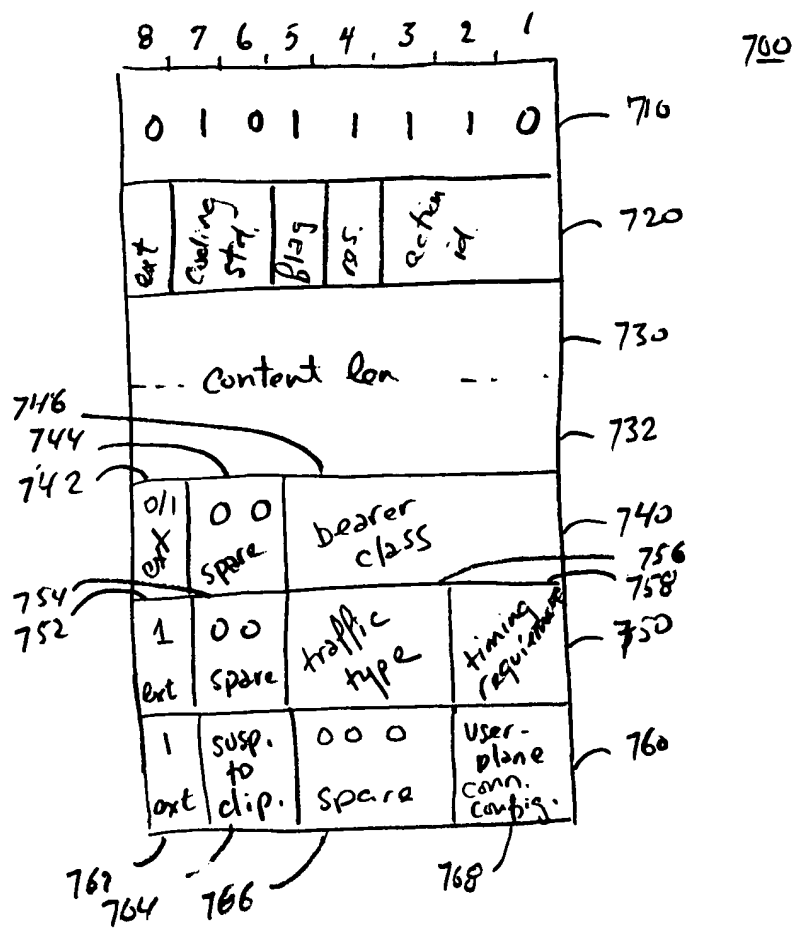 8 7 6 5 4 3 2 1
700
0 1 0 1 1 1 1 0
710
ext
Coding
Std.
flag
res.
action
id.
720
730
Content len
746
744
732
742
0/1
ext
0 0
spare
bearer
class
740
756
758
754
752
1
ext
0 0
spare
traffic
type
timing
requirements
750
1
ext
susp.
to
clip.
0 0 0
spare
User-
plane
conn.
config.
760
762
764
766
768